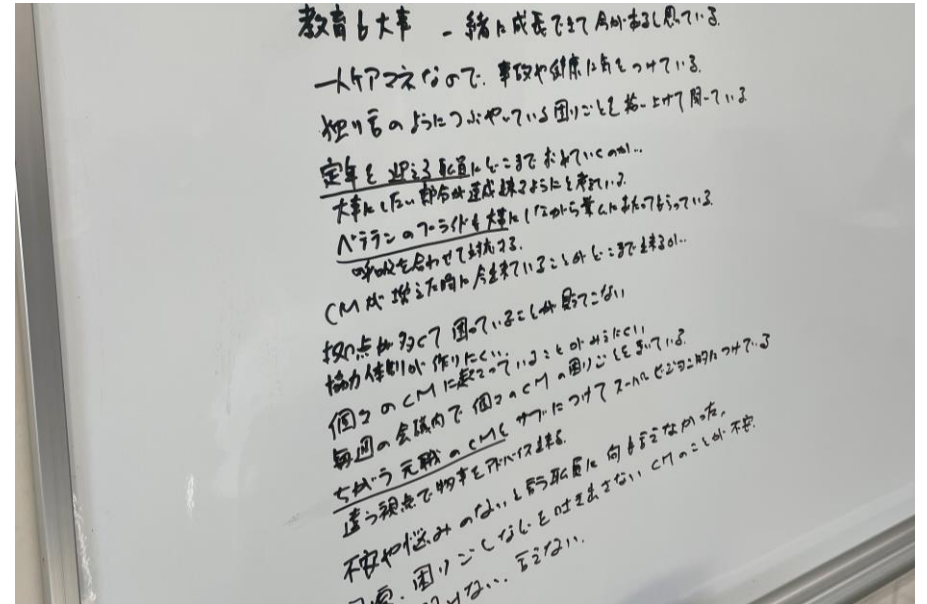 教育も大事 一緒に成長できて今があると思っている
一人ケアマネなので、事故や健康に気をつけている
独り言のようにつぶやいている困りごとを拾い上げて聞いている
定年を迎える職員にどこまでおきていくのか…
大事にしたい部分が達成出来るようにと考えている。
ベテランのプライドも大事にしながら業務にあたってもらっている。
呼吸を合わせて対応する。
CMが増えた時に今出来ていることがどこまで出来るか…
拠点が多くて困っていることが見えてこない
協力体制が作りにくい、
個々のCMに起こっていることがみえにくい
毎週の会議内で個々のCMの困りごとを聞いている。
ちがう元職のCMをサブにつけてスーパービジョン的につけている
違う視点で物事をアドバイス出来る。
不安や悩みのないと言う職員に何も言えなかった。
困りごとなどを吐き出さないCMのことが不安
けない、言えない。